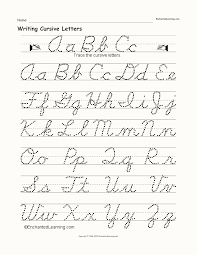 Name
EnchantedLearning.com
Writing Cursive Letters
Aa Bb Cc
Trace the cursive letters.
Aa Bb Cc Dd Ee
Ff Gg Hh Ii Jj
Kk Ll Mm Nn
Oo Pp Qq Rr
Ss Tt Uu Vv
Ww Xx Yy Zz
©EnchantedLearning.com